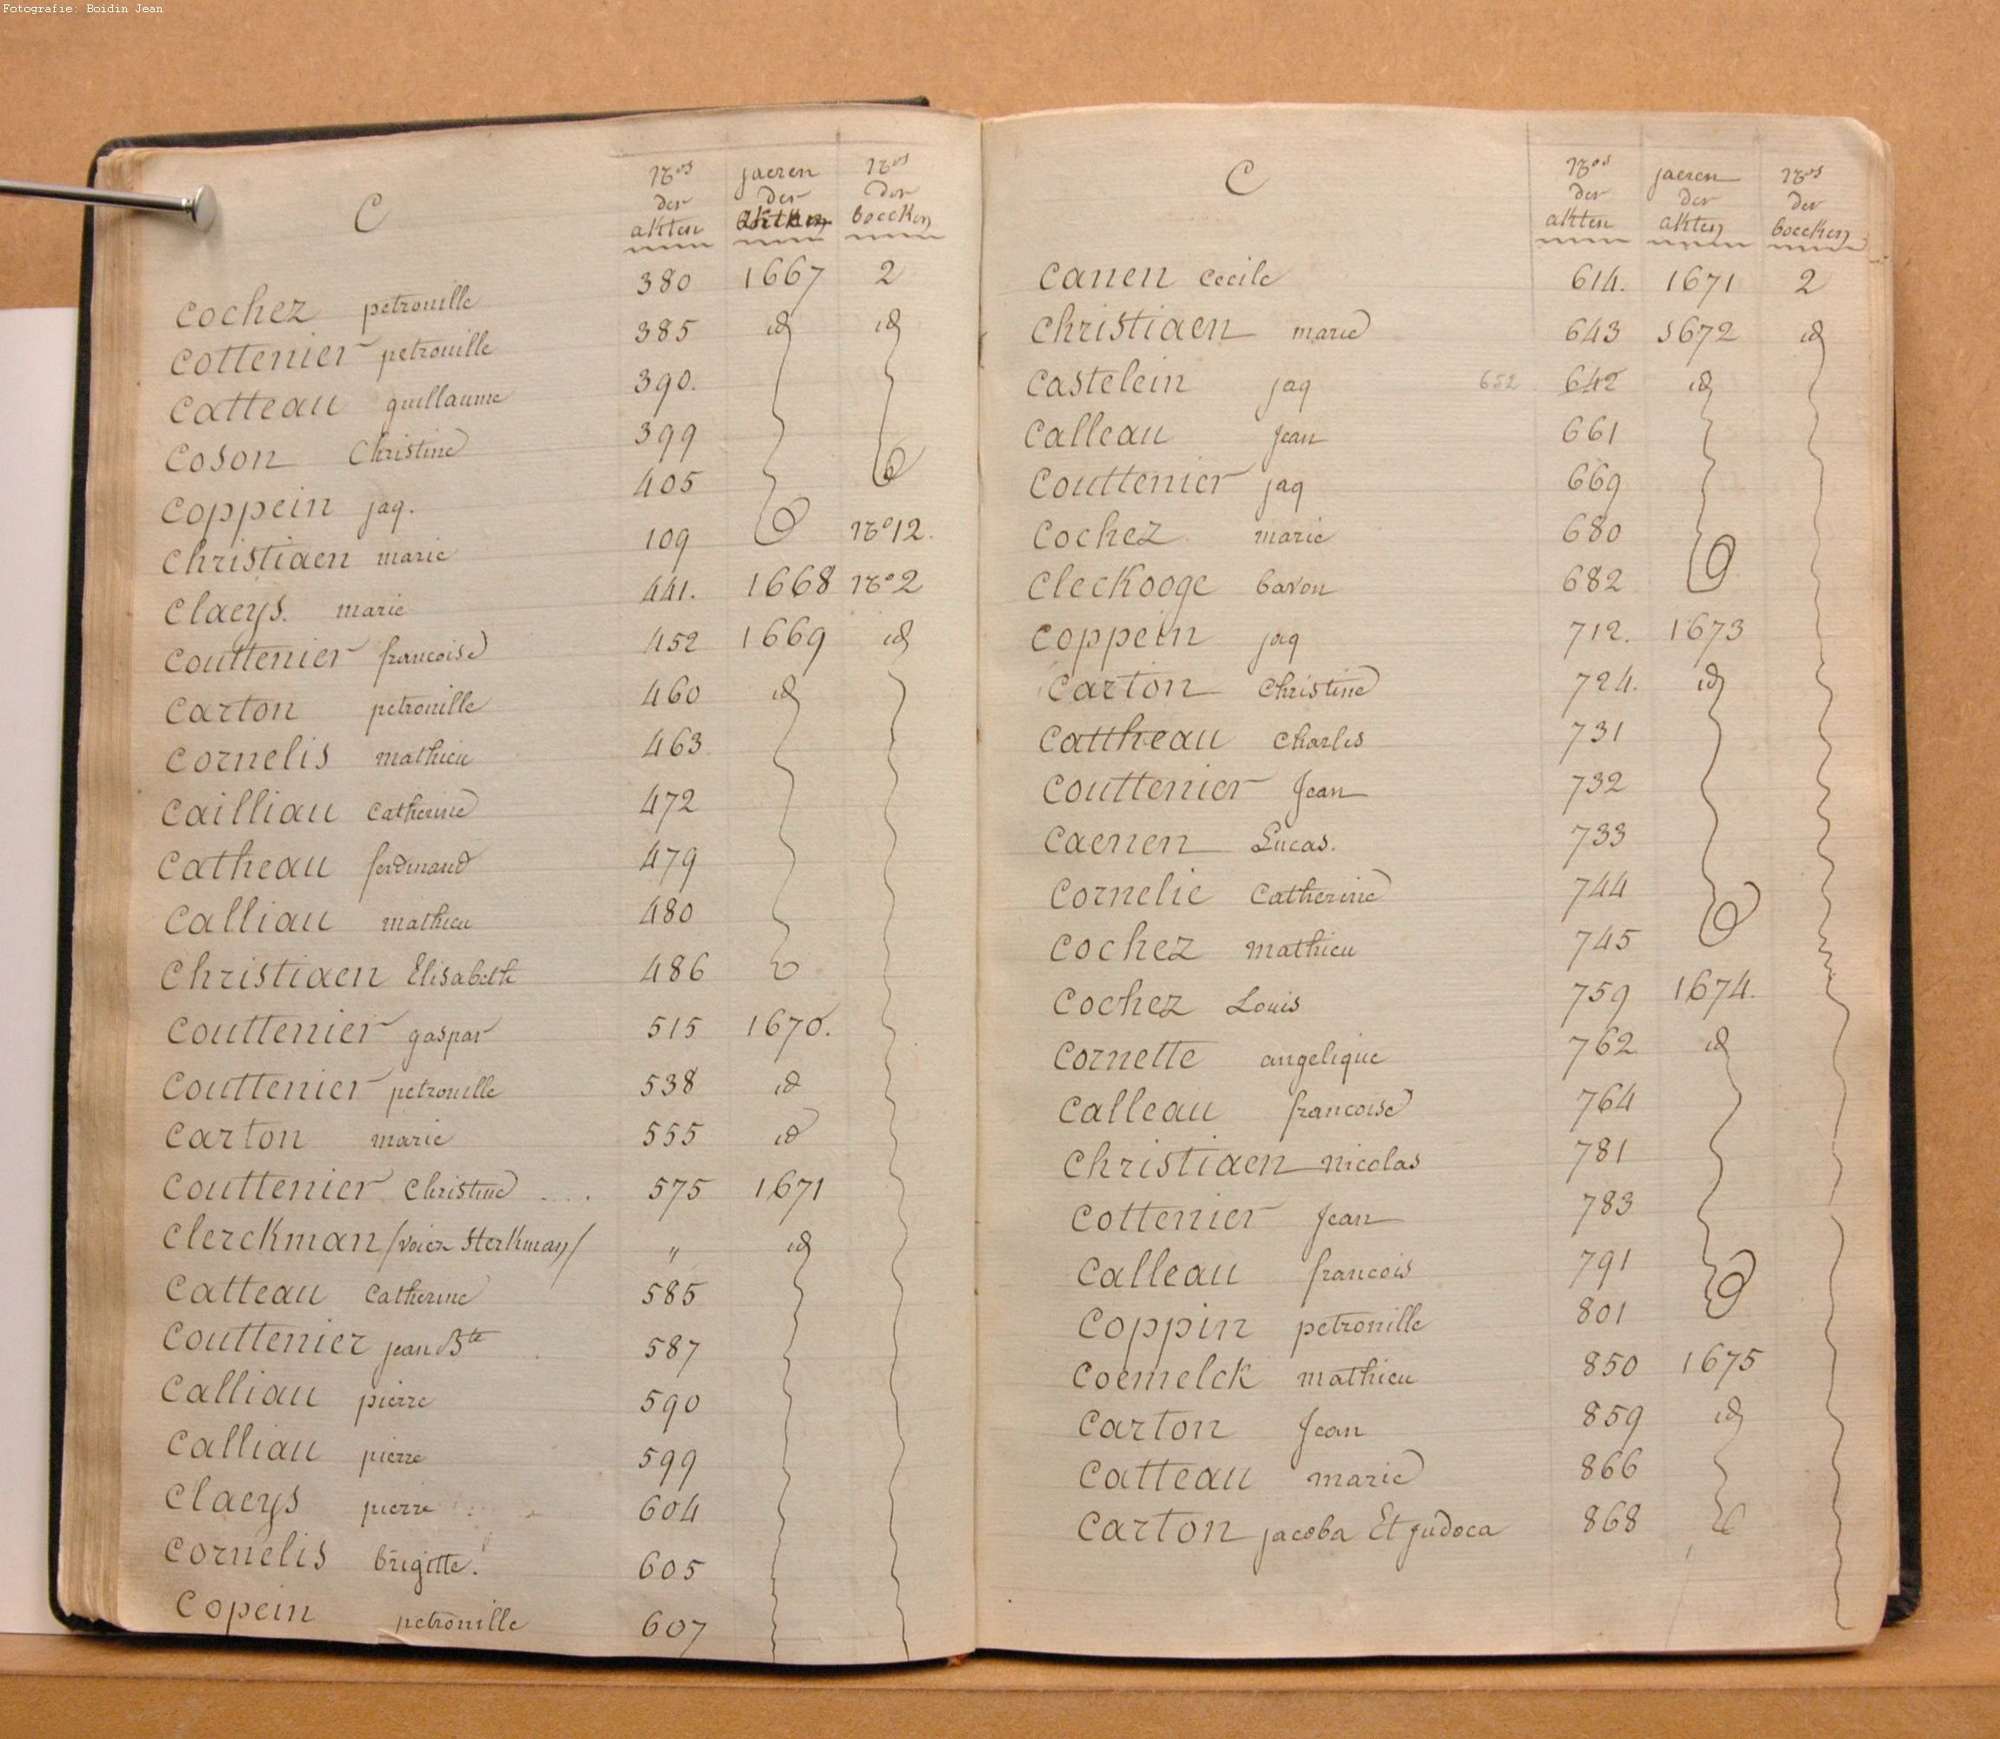 Fotografie: Boidin Jean
C
Nos der akten jaeren der akten Nos der boecken
Cochez petronille 380 1667 2
Cottenier petronille 385 id id
Catteau guillaume 390.
Coson Christine 399
Coppein jaq. 405
Christiaen marie 109 No 12.
Claeys. marie 441. 1668 No 2
Couttenier francoise 452 1669 id
Carton petronille 460 id
Cornelis mathieu 463
Cailliau Catherine 472
Catheau ferdinand 479
Calliau mathieu 480
Christiaen Elisabeth 486
Couttenier gaspar 515 1670.
Couttenier petronille 538 id
Carton marie 555 id
Couttenier Christine .... 575 1671
Clerckman /voier Sterkman/ " id
Catteau Catherine 585
Couttenier jean Bte 587
Calliau pierre 590
Calliau pierre 599
Claeys pierre 604
Cornelis brigitte. 605
Copein petronille 607
C
Nos der akten jaeren der akten Nos der boecken
Canen Cecile 614. 1671 2
Christiaen marie 643 1672 id
Castelein jaq 652 642 id
Calleau Jean 661
Couttenier jaq 669
Cochez marie 680
Cleckooge bavon 682
Coppein jaq 712. 1673
Carton Christine 724. id
Cattheau Charles 731
Couttenier Jean 732
Caenen Lucas. 733
Cornelie Catherine 744
Cochez mathieu 745
Cochez Louis 759 1674.
Cornette angelique 762 id
Calleau francoise 764
Christiaen nicolas 781
Cottenier Jean 783
Calleau francois 791
Coppin petronille 801
Coemelck mathieu 850 1675
Carton Jean 859 id
Catteau marie 866
Carton jacoba Et judoca 868